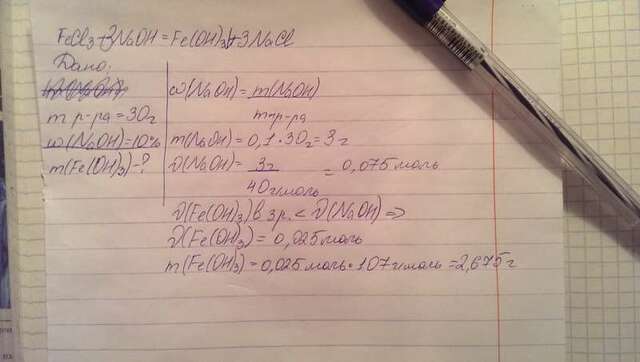 FeCl₃+3NaOH=Fe(OH)₃↓+3NaCl
Дано:
m р-ра=30г
ω(NaOH)=10%
m(Fe(OH)₃)-?
ω(NaOH)=m(NaOH)/m р-ра
m(NaOH)=0,1·30г=3г
ν(NaOH)=3г/40г/моль=0,075моль
ν(Fe(OH)₃)в 3р.<ν(NaOH)=>
ν(Fe(OH)₃)=0,025моль
m(Fe(OH)₃)=0,025моль·107г/моль=2,675г